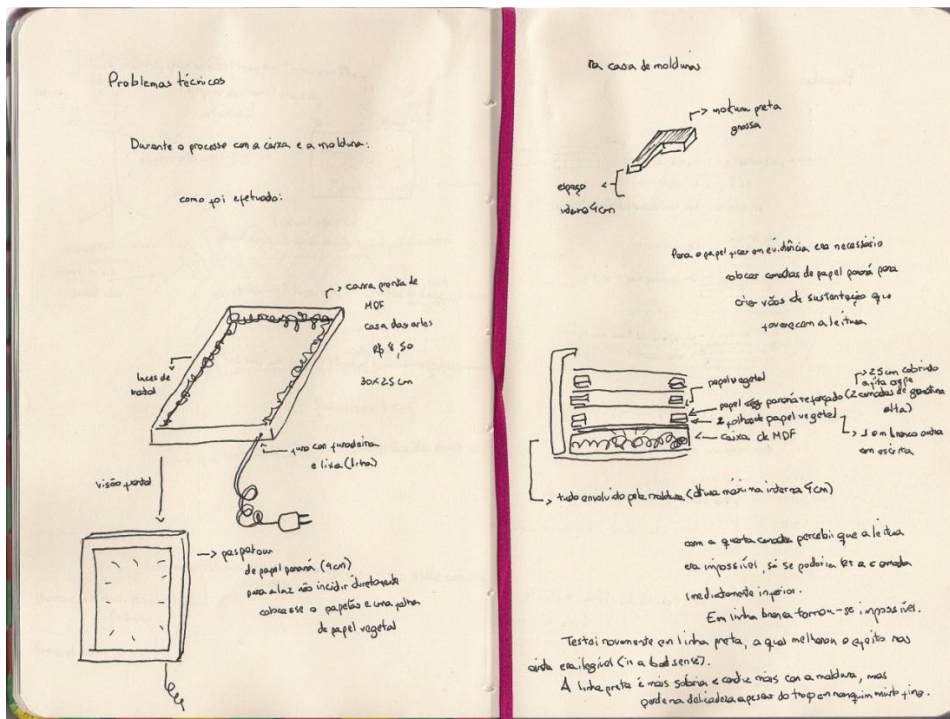 Problemas técnicos
Durante o processo com a caixa e a moldura:
como foi efetuado:
caixa pronta de
MDF
casa das artes
R$ 8,50
30x25 cm
luzes de
natal
furo com furadeira
e lixa (linha)
visão frontal
paspatour
de papel paraná (4cm)
para a luz não incidir diretamente
colocasse o papelão e uma folha
de papel vegetal
na casa de molduras
moldura preta
grossa
espaço
interno 4cm
Para o papel ficar em evidência era necessário
colocar camadas de papel paraná para
criar vãos de sustentação que
favoreçam a leitura
papel vegetal
2,5 cm cobrindo
papel paraná reforçado (2 camadas de gramatura
alta)
2 folhas papel vegetal
1 em branco outra
com escrita
caixa de MDF
tudo envolvido pela moldura (altura máxima interna 4cm)
com a quarta camada percebi que a leitura
era impossível, só se poderia ler a camada
imediatamente inferior.
Em linha branca tornou-se impossível.
Testei novamente em linha preta, a qual melhorou o efeito mas
ainda era ilegível (in a bad sense).
A linha preta é mais sóbria e condiz mais com a moldura, mas
perde na delicadeza apesar do traço em nanquim muito fino.